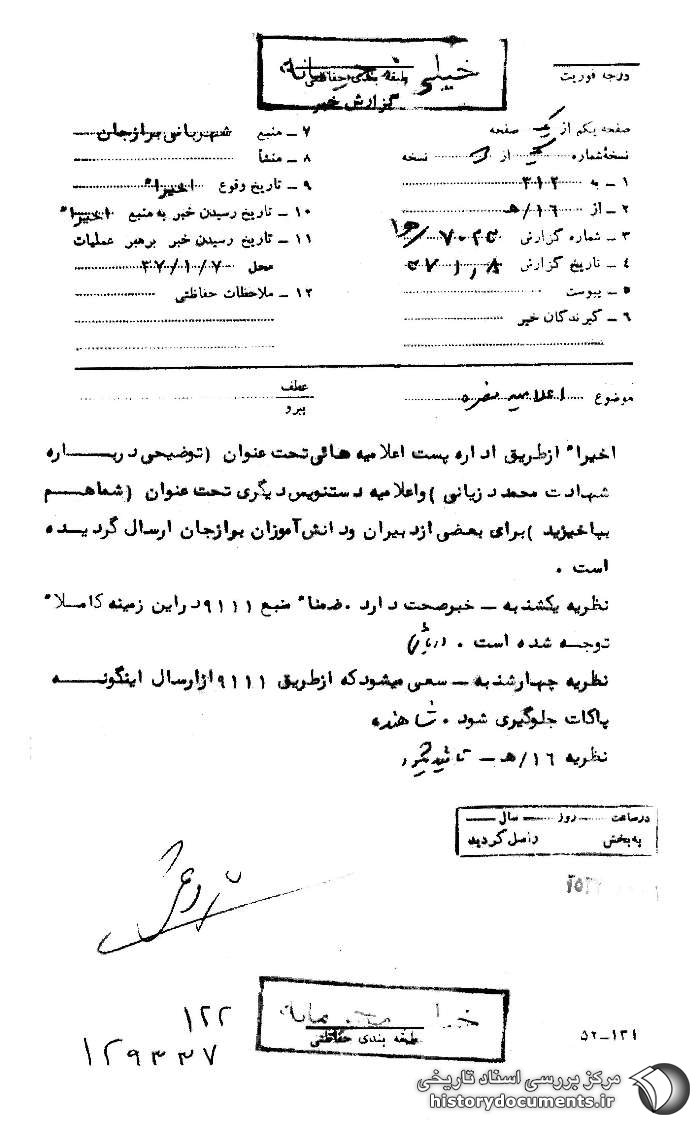 خیلی محرمانه
طبقه بندی حفاظتی
گزارش خبر
درجه فوریت
صفحه یکم از یک صفحه
نسخهٔ شماره از نسخه
۱ ـ به ۳۱۲
۲ ـ از ۱۶/هـ
۳ ـ شماره گزارش
۴ ـ تاریخ گزارش
۵ ـ پیوست
۶ ـ گیرندگان خبر
۷ ـ منبع شهربانی برازجان
۸ ـ منشأ
۹ ـ تاریخ وقوع اخیراً
۱۰ ـ تاریخ رسیدن خبر به منبع اخیراً
۱۱ ـ تاریخ رسیدن خبر برهبر عملیات
محل ۳۷/۱/۷
۱۲ ـ ملاحظات حفاظتی
موضوع اعلامیه مضره
عطف
پیرو
اخیراً ازطریق اداره پست اعلامیه هائی تحت عنوان (توضیحی درباره
شهادت محمد دزیانی) واعلامیه دستنویس دیگری تحت عنوان (شماهم
بپاخیزید) برای بعضی ازدبیران ودانش آموزان برازجان ارسال گردیده
است .
نظریه یکشنبه ـ خبرصحت دارد . ضمناً منبع ۹۱۱۱ دراین زمینه کاملاً
توجیه شده است .
نظریه چهارشنبه ـ سعی میشودکه ازطریق ۹۱۱۱ ازارسال اینگونه
پاکات جلوگیری شود . شاهنده
نظریه ۱۶/هـ ـ تائید میگردد
درساعت روز سال
به بخش واصل گردید
۱۲۲
۱۲۹۳۳۷
خیلی محرمانه
طبقه بندی حفاظتی
۵۲-۱۳۱
مرکز بررسی اسناد تاریخی
historydocuments.ir